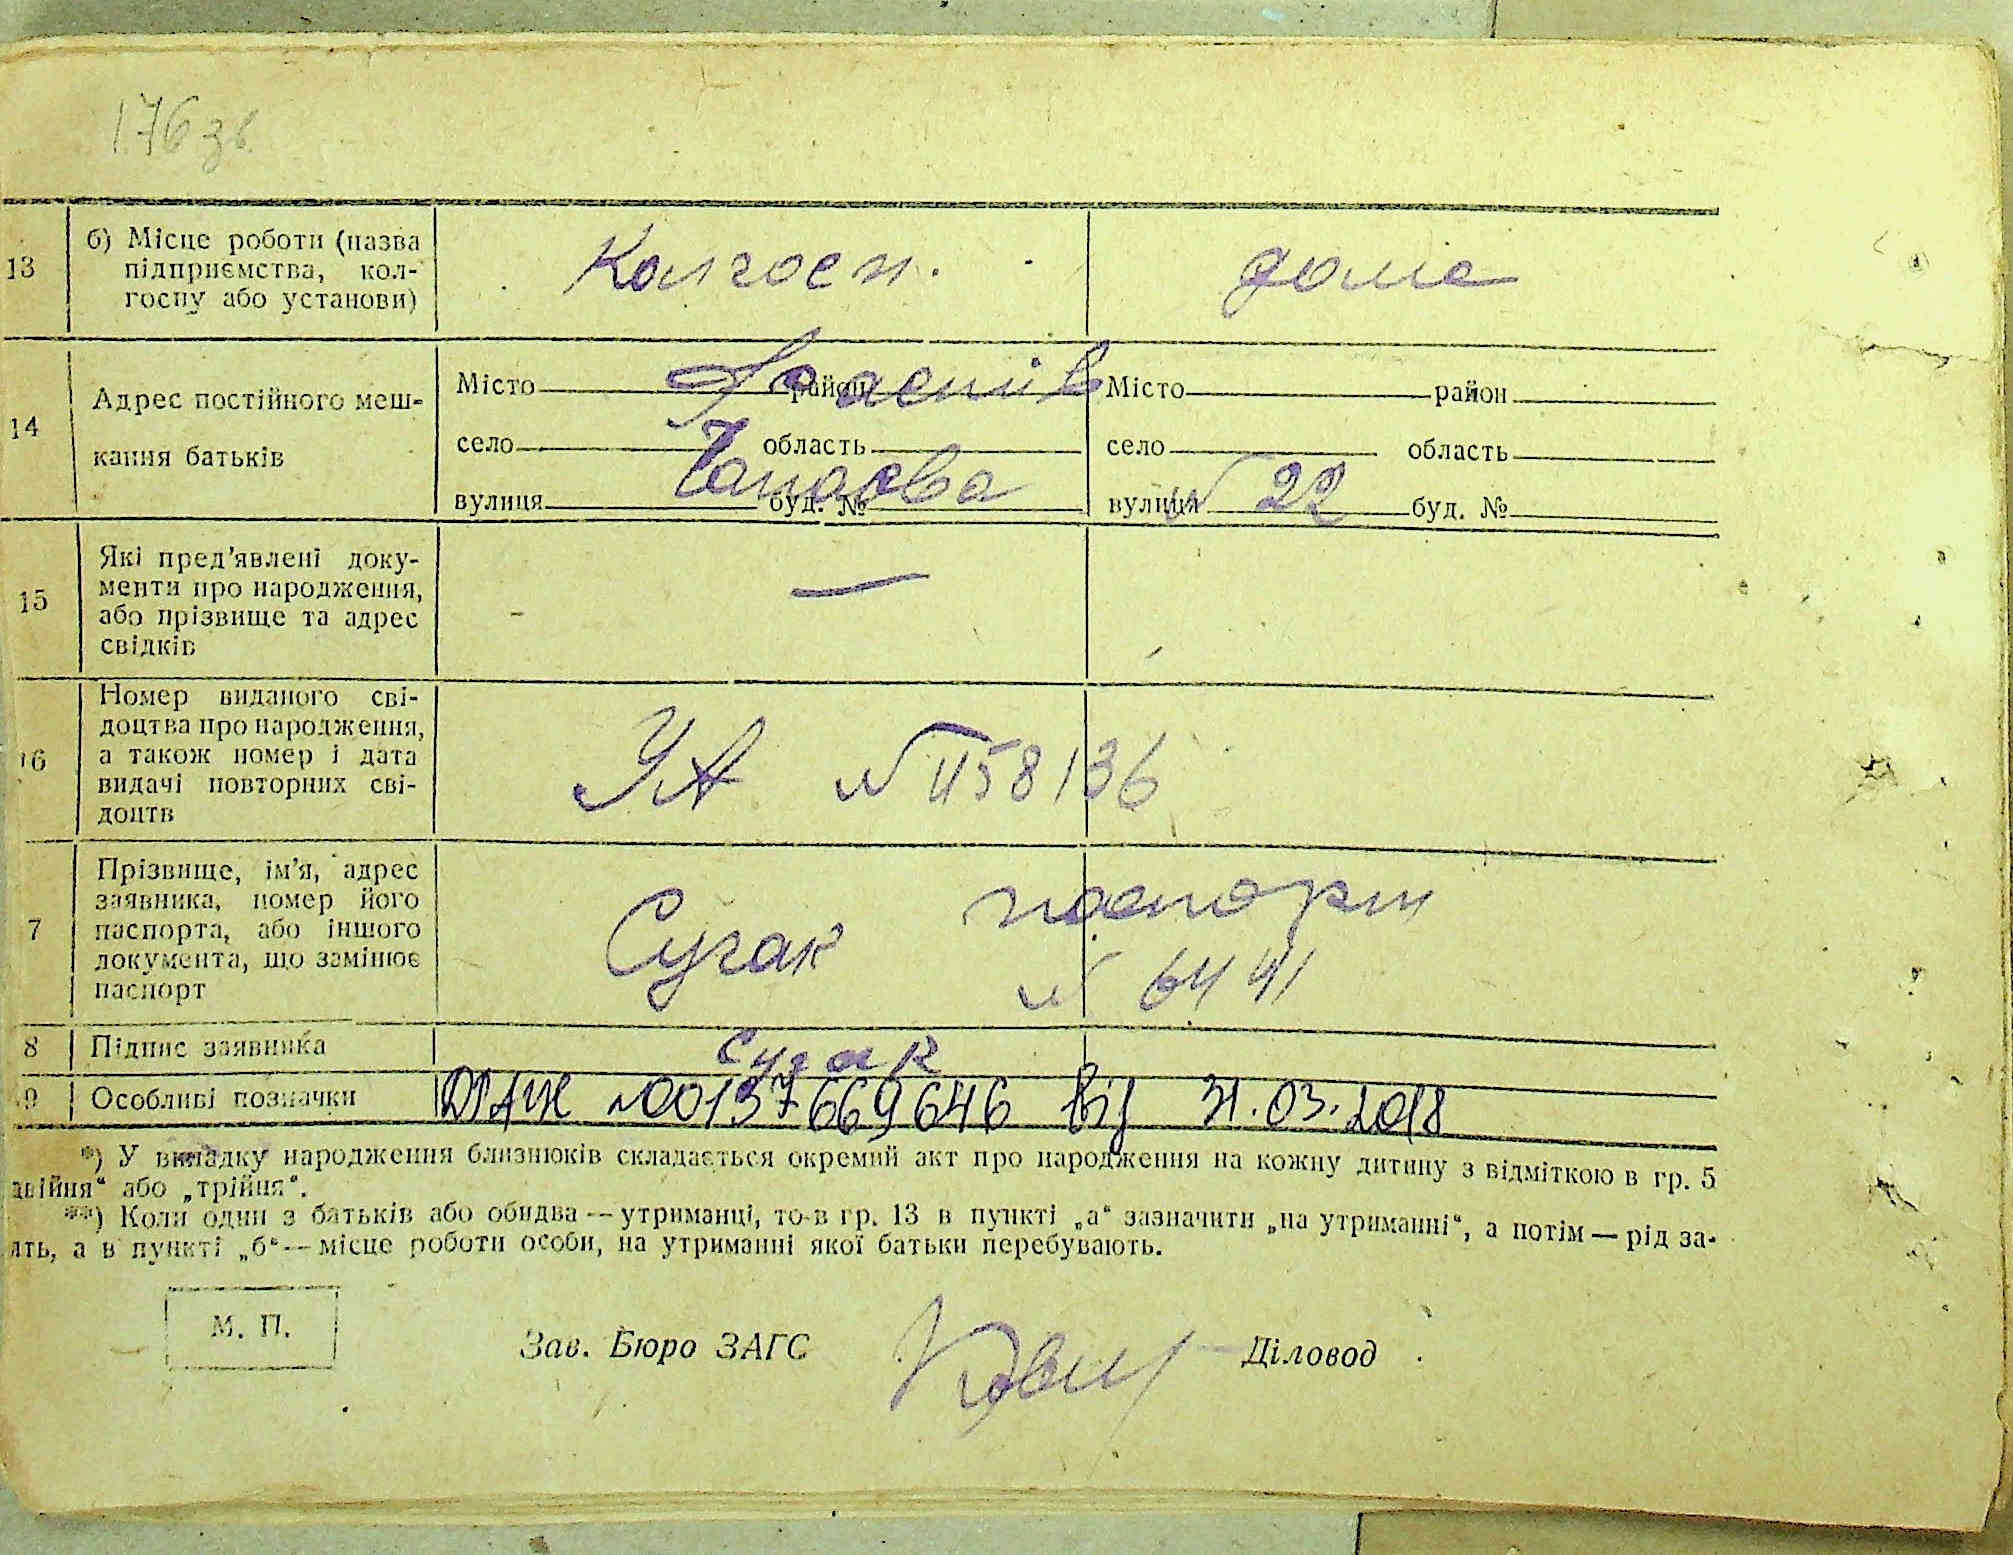 176 зв.
13 б) Місце роботи (назва підприємства, кол-
госпу або установи)
Колгосп. дома
14 Адрес постійного меш-
кання батьків
Місто район Місто район
Фастів
село область село область
Чапаєва № 22
вулиця буд. № вулиця буд. №
15 Які пред'явлені доку-
менти про народження,
або прізвище та адрес
свідків
—
16 Номер виданого сві-
доцтва про народження,
а також номер і дата
видачі повторних сві-
доцтв
УА № 458136
7 Прізвище, ім'я, адрес
заявника, номер його
паспорта, або іншого
документа, що замінює
паспорт
Сугак паспорт
№ 6441
8 Підпис заявника
Сугак
9 Особливі позначки
№00137669646 від 31.03.2018
*) У випадку народження близнюків складається окремий акт про народження на кожну дитину з відміткою в гр. 5
двійня" або „трійня".
**) Коли один з батьків або обидва — утриманці, то в гр. 13 в пункті „а" зазначити „на утриманні", а потім — рід за-
ять, а в пункті „б" — місце роботи особи, на утриманні якої батьки перебувають.
М. П.
Зав. Бюро ЗАГС Діловод